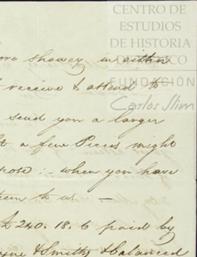 CENTRO DE
ESTUDIOS
DE HISTORIA
DE MÉXICO
FUNDACIÓN
Carlos Slim
showey written
receive & attend to
send you a larger
a few Pieces might
when you have
them to us. —
240. 18. 6 paid by
& Smith & balanced